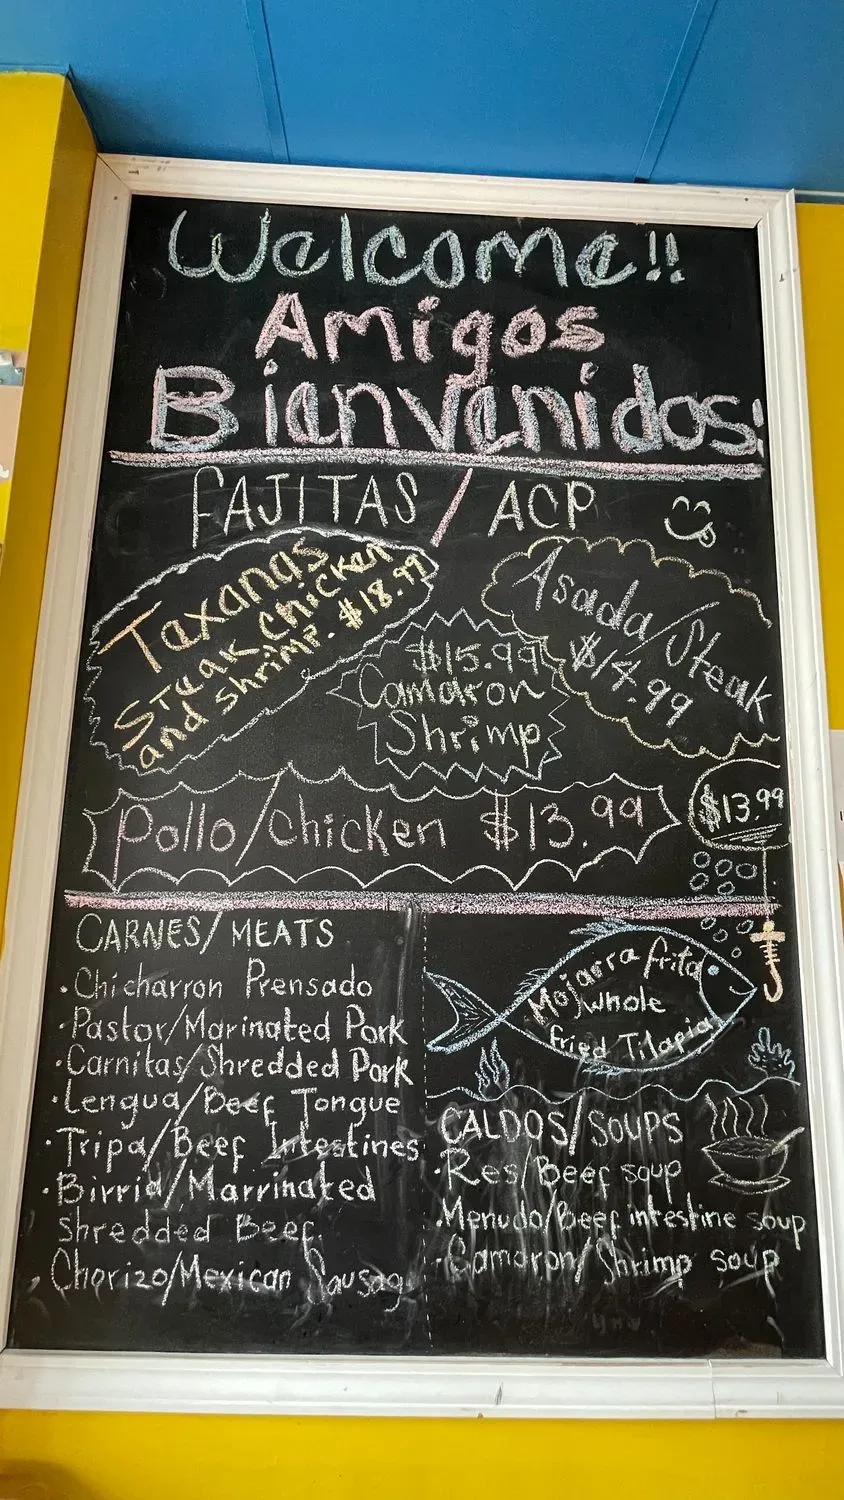 Welcome!!
Amigos
Bienvenidos!
FAJITAS/ACP
Texanas
Steak, chicken
and shrimp. $18.99
Asada/Steak
$14.99
$15.99
Camaron
Shrimp
Pollo/chicken $13.99
$13.99
CARNES/MEATS
•Chicharron Prensado
•Pastor/Marinated Pork
•Carnitas/Shredded Pork
•Lengua/Beef Tongue
•Tripa/Beef Intestines
•Birria/Marrinated
shredded Beef.
•Chorizo/Mexican Sausag
Mojarra frita
whole
fried Tilapia
CALDOS/SOUPS
•Res/Beef soup
•Menudo/Beef intestine soup
•Camaron/Shrimp soup